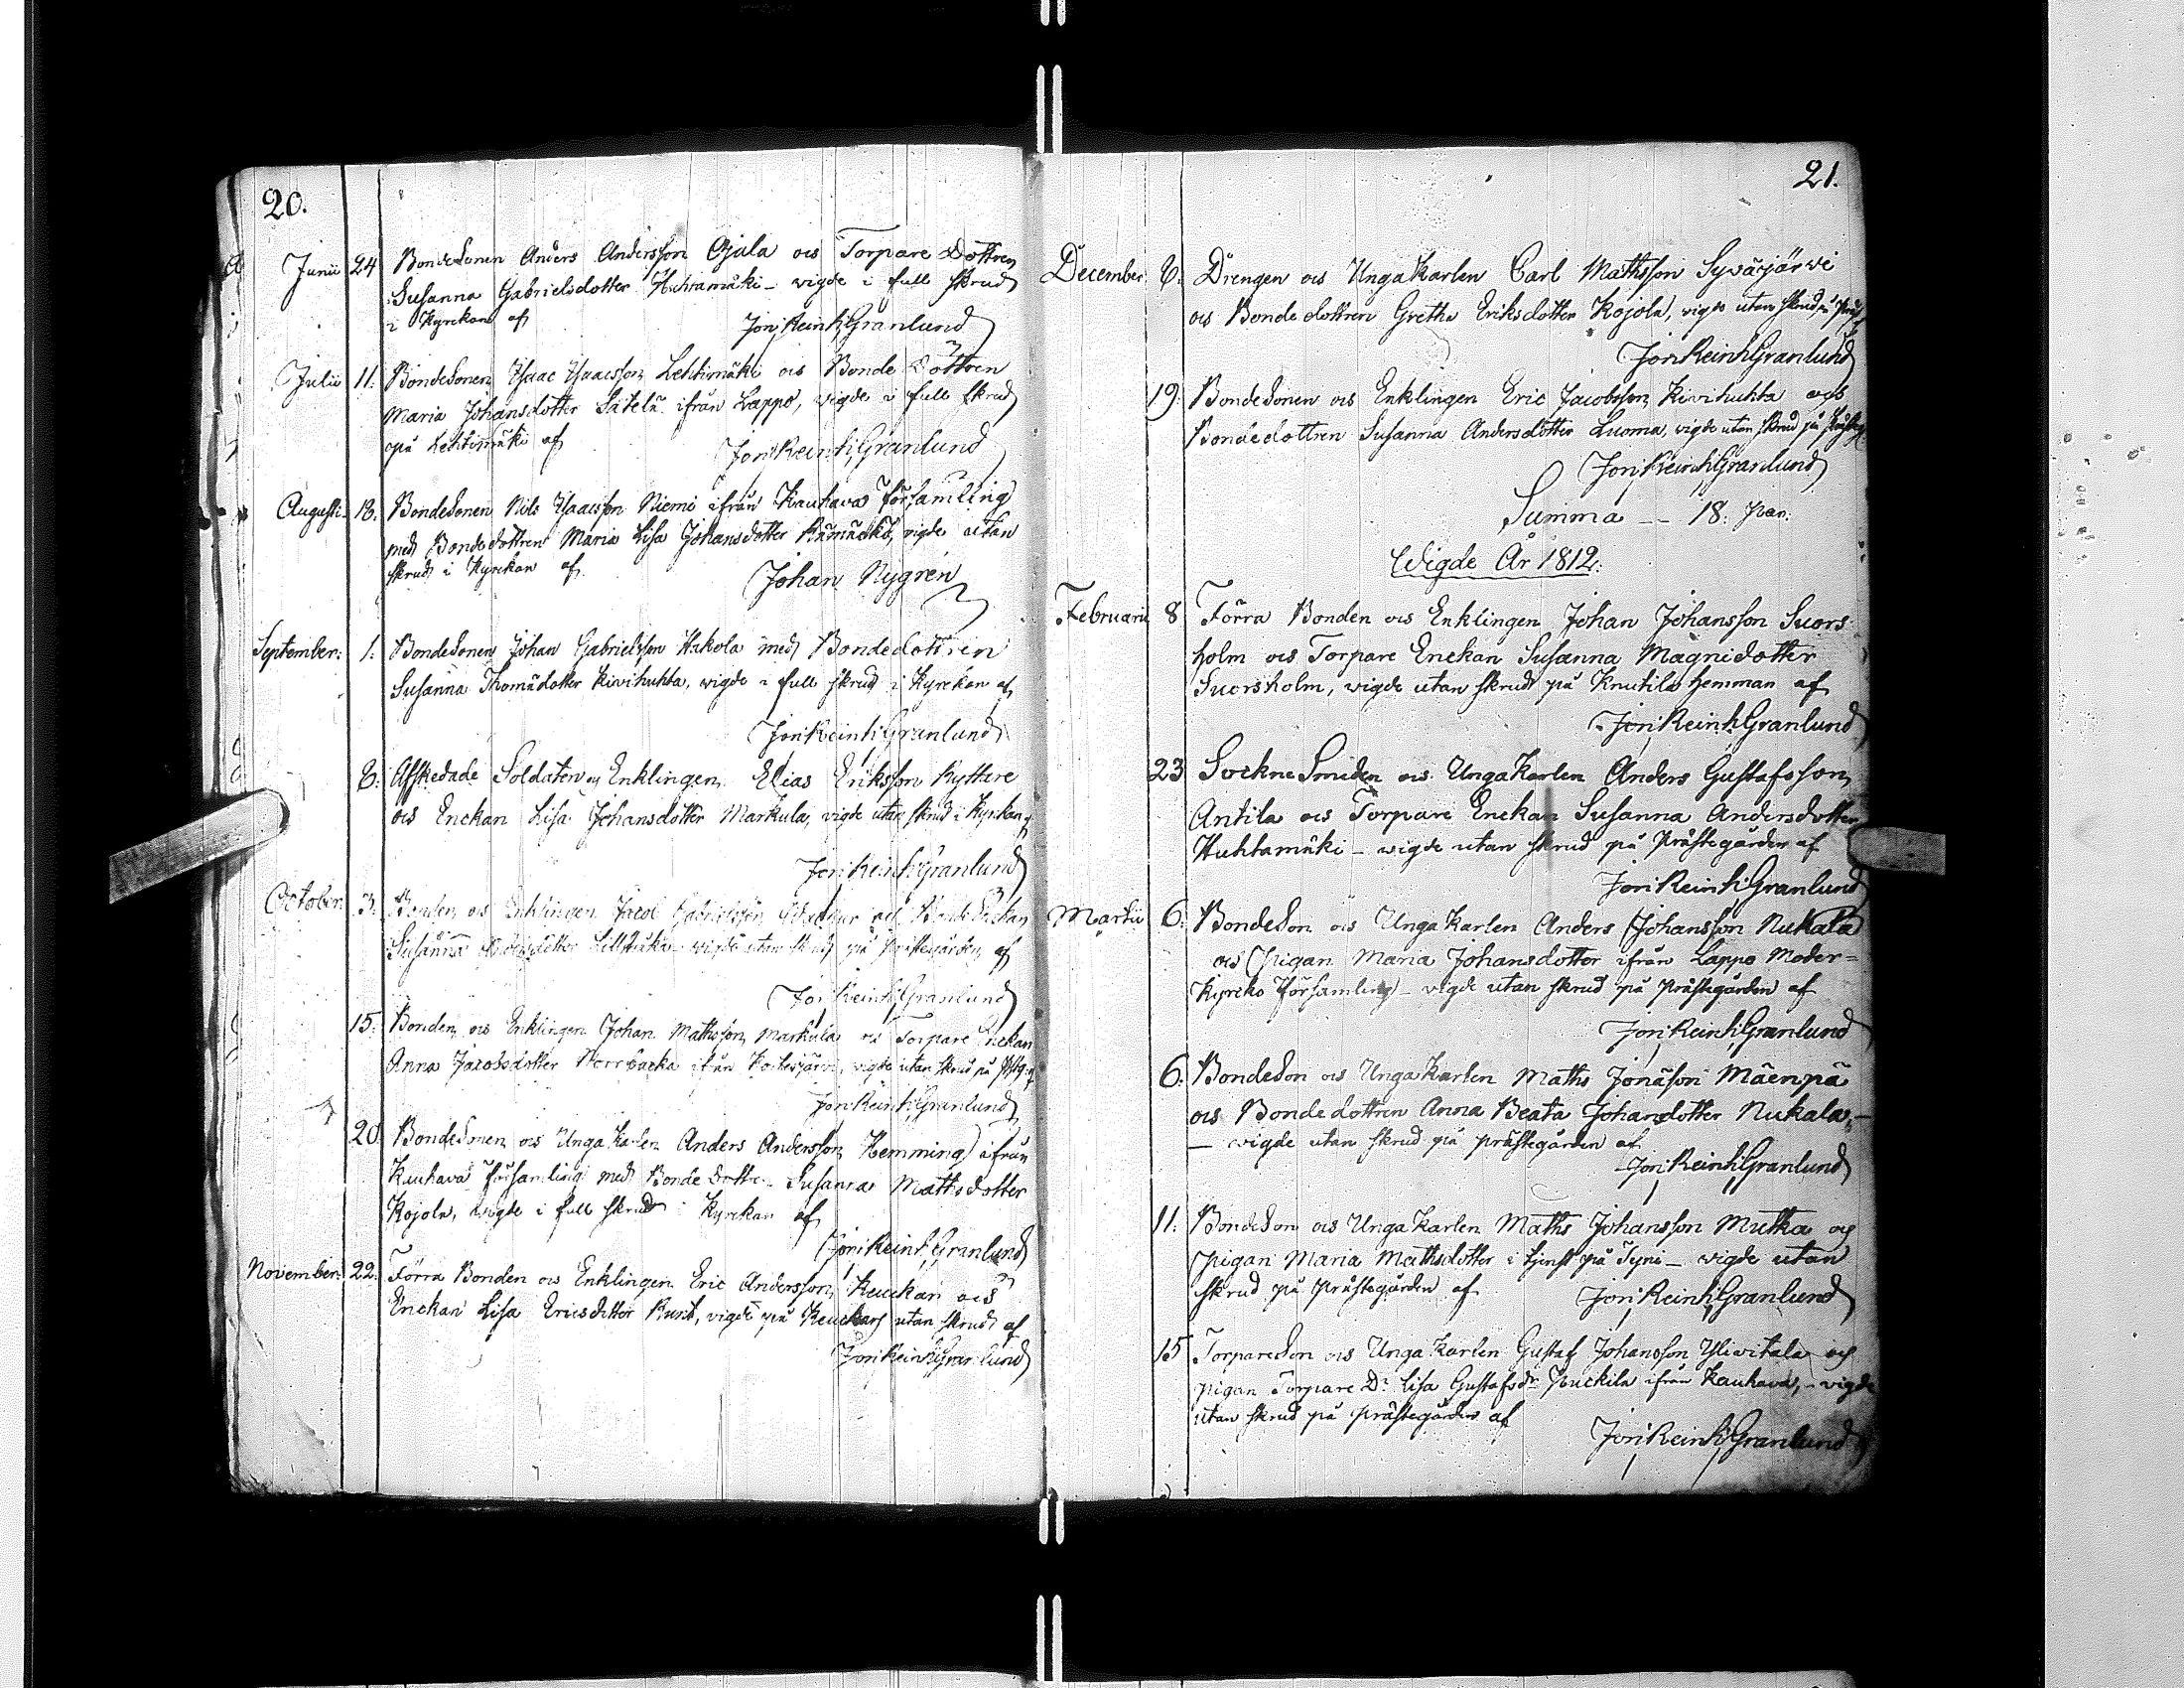 20.
Junii 24 BondeSonen Anders Andersson Ojala och Torpare Dottren
Susanna Gabrielsdotter Huhtamäki - vigde i full skrud
i Kyrckan af Jon: Reinh: Granlund
Julii 11. BondeSonen Isaac Isaacsson Lehtimäki och Bonde Dottren
Maria Johansdotter ifrån Lappo, vigde i full skrud
på Lehtimäki af Jon: Reinh: Granlund
Augusti 18. BondeSonen Nils Isaacsson Niemi ifrån Kauhava Församling
med Bondedottren Maria Lisa Johansdotter vigde utan
skrud i Kyrckan af Johan Nygren
September: 1. BondeSonen Johan Gabrielsson Hakola med Bondedottren
Susanna Thomädotter Kivihuhta, vigde i full skrud i Kyrckan af
Jon: Reinh: Granlund
8. Afskedade Soldaten och Enklingen Elias Eriksson Ryttare
och Enckan Lisa Johansdotter Markula, vigde utan skrud i Kyrckan af
Jon: Reinh: Granlund
October: 3. Bonden och Enklingen Jacob Gabrielsson och Bonde Enckan
Susanna vigde utan skrud på Prästegården af
Jon: Reinh: Granlund
15. Bonden och Enklingen Johan Mathsson Markula och Torpare Enckan
Anna Jacobsdotter Norrbacka ifrån Kortesjärvi, vigde utan skrud på
Jon: Reinh: Granlund
20. BondeSonen och Unga Karlen Anders Andersson Hemming ifrån
Kauhava Församling med Bonde Dottren Susanna Mathsdotter
Kojola, vigde i full skrud i Kyrckan af
Jon: Reinh: Granlund
November: 22. Förra Bonden och Enklingen Eric Andersson Keuckari och
Enckan Lisa Ericsdotter vigde på Keuckari utan skrud af
Jon: Reinh: Granlund
21.
December 8. Drengen och Unga Karlen Carl Mathsson Syväjärvi
och Bonde dottren Gretha Eriksdotter Kojola, vigde utan skrud på
Jon: Reinh: Granlund
19. BondeSonen och Enklingen Eric Jacobsson Kivihuhta och
Bondedottren Susanna Andersdotter Luoma, vigde utan skrud på
Jon: Reinh: Granlund
Summa -- 18: Par:
Wigde År 1812.
Februarii 8 Förra Bonden och Enklingen Johan Johansson Suors
holm och Torpare Enckan Susanna Magnidotter
Suorsholm, vigde utan skrud på Knutila hemman af
Jon: Reinh: Granlund
23 SockneSmeden och Unga Karlen Anders Gustafsson
Antila och Torpare Enckan Susanna Andersdotter
Huhtamäki - vigde utan skrud på Prästegården af
Jon: Reinh: Granlund
Martii 6. BondeSon och Unga Karlen Anders Johansson Nukala
och Pigan Maria Johansdotter ifrån Lappo Moder=
Kyrcko Församling - vigde utan skrud på Prästegården af
Jon: Reinh: Granlund
6. BondeSon och Unga Karlen Maths Jonäson Mäenpä
och Bonde dottren Anna Beata Johansdotter Nukala, -
- vigde utan skrud på prästegården af
Jon: Reinh: Granlund
11. BondeSon och Unga Karlen Maths Johansson Mutka och
pigan Maria Mathsdotter i tjenst på Tyni - vigde utan
skrud på Prästegården af Jon: Reinh: Granlund
15 TorpareSon och Unga Karlen Gustaf Johansson Yliwitala och
pigan Torpare Dr Lisa Gustafsdr ifrån Kauhava, - vigde
utan skrud på prästegården af
Jon: Reinh: Granlund